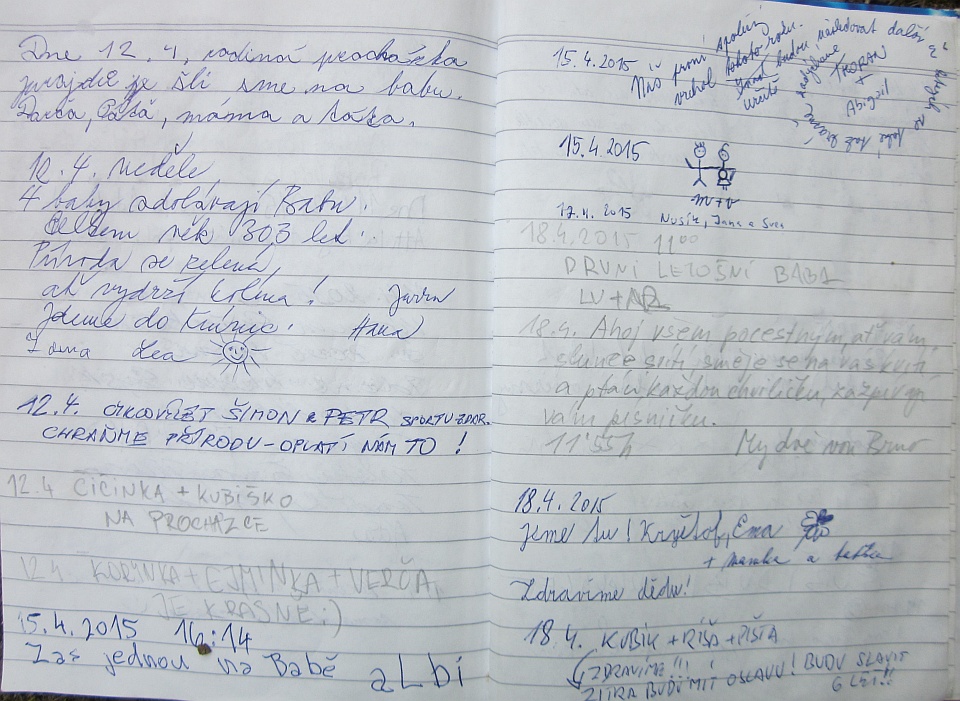 Dne 12. 4, rodinná procházka
šli sme na babu.
máma a táta.
12. 4. neděle,
4 baby zdolávají Babu.
Celkem věk 303 let.
Příroda se zelená,
ať vydrží kolena!
Jdeme do Kuřimi. Hana
Jana Lea
12.4. ŠIMON a PETR SPORTU ZDAR.
CHRAŇME PŘÍRODU - OPLATÍ NÁM TO!
12.4 ČIČINKA + KUBIŠKO
NA PROCHÁZCE
12.4. KORINKA + EJMINKA + VERČA,
JE KRÁSNĚ :)
15.4.2015 16:14
Zas jednou na Babě aLbi
15.4.2015 Náš první společný
vrchol tohoto roku.
budou následovat další
určitě
+
Abigail
15.4.2015
m+v
17.4.2015 Jana a
18.4.2015 11⁰⁰
PRVNÍ LETOŠNÍ BABA
LV +
18.4. Ahoj všem pocestným ať vám
slunce svítí, směje se na vás kvítí
a ptáci každou chviličku, zazpívají
vám písničku.
11'55h My dvě Brno
18.4.2015
Jsme tu! Kryštof, Ema
+ mamka a taťka
Zdravíme dědu!
18.4. KUBÍK + RÍŠA + PÍŠŤA
ZDRAVÍME!!!
ZÍTRA BUDU MÍT OSLAVU! BUDU SLAVIT
6 LET!!